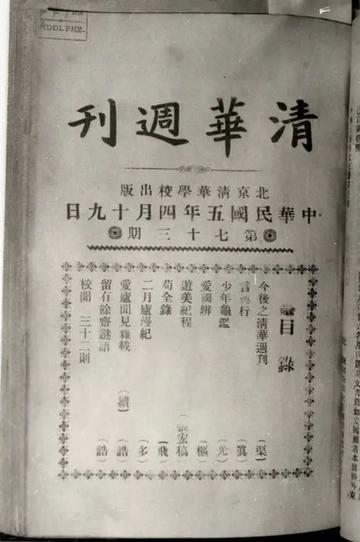 清華週刊
北京清華學校出版
中華民國五年四月十九日
第七十三期
目錄
今後之清華週刊 (渠)
言與行 (眞)
少年龜鑑 (光)
愛國辨 (樞)
遊美紀程 張宏稿
荀全錄 (飛)
二月廬漫紀 (多)
愛廬聞見雜載 (續) (誥)
留有餘齋謎語 (誥)
校聞 三十二則